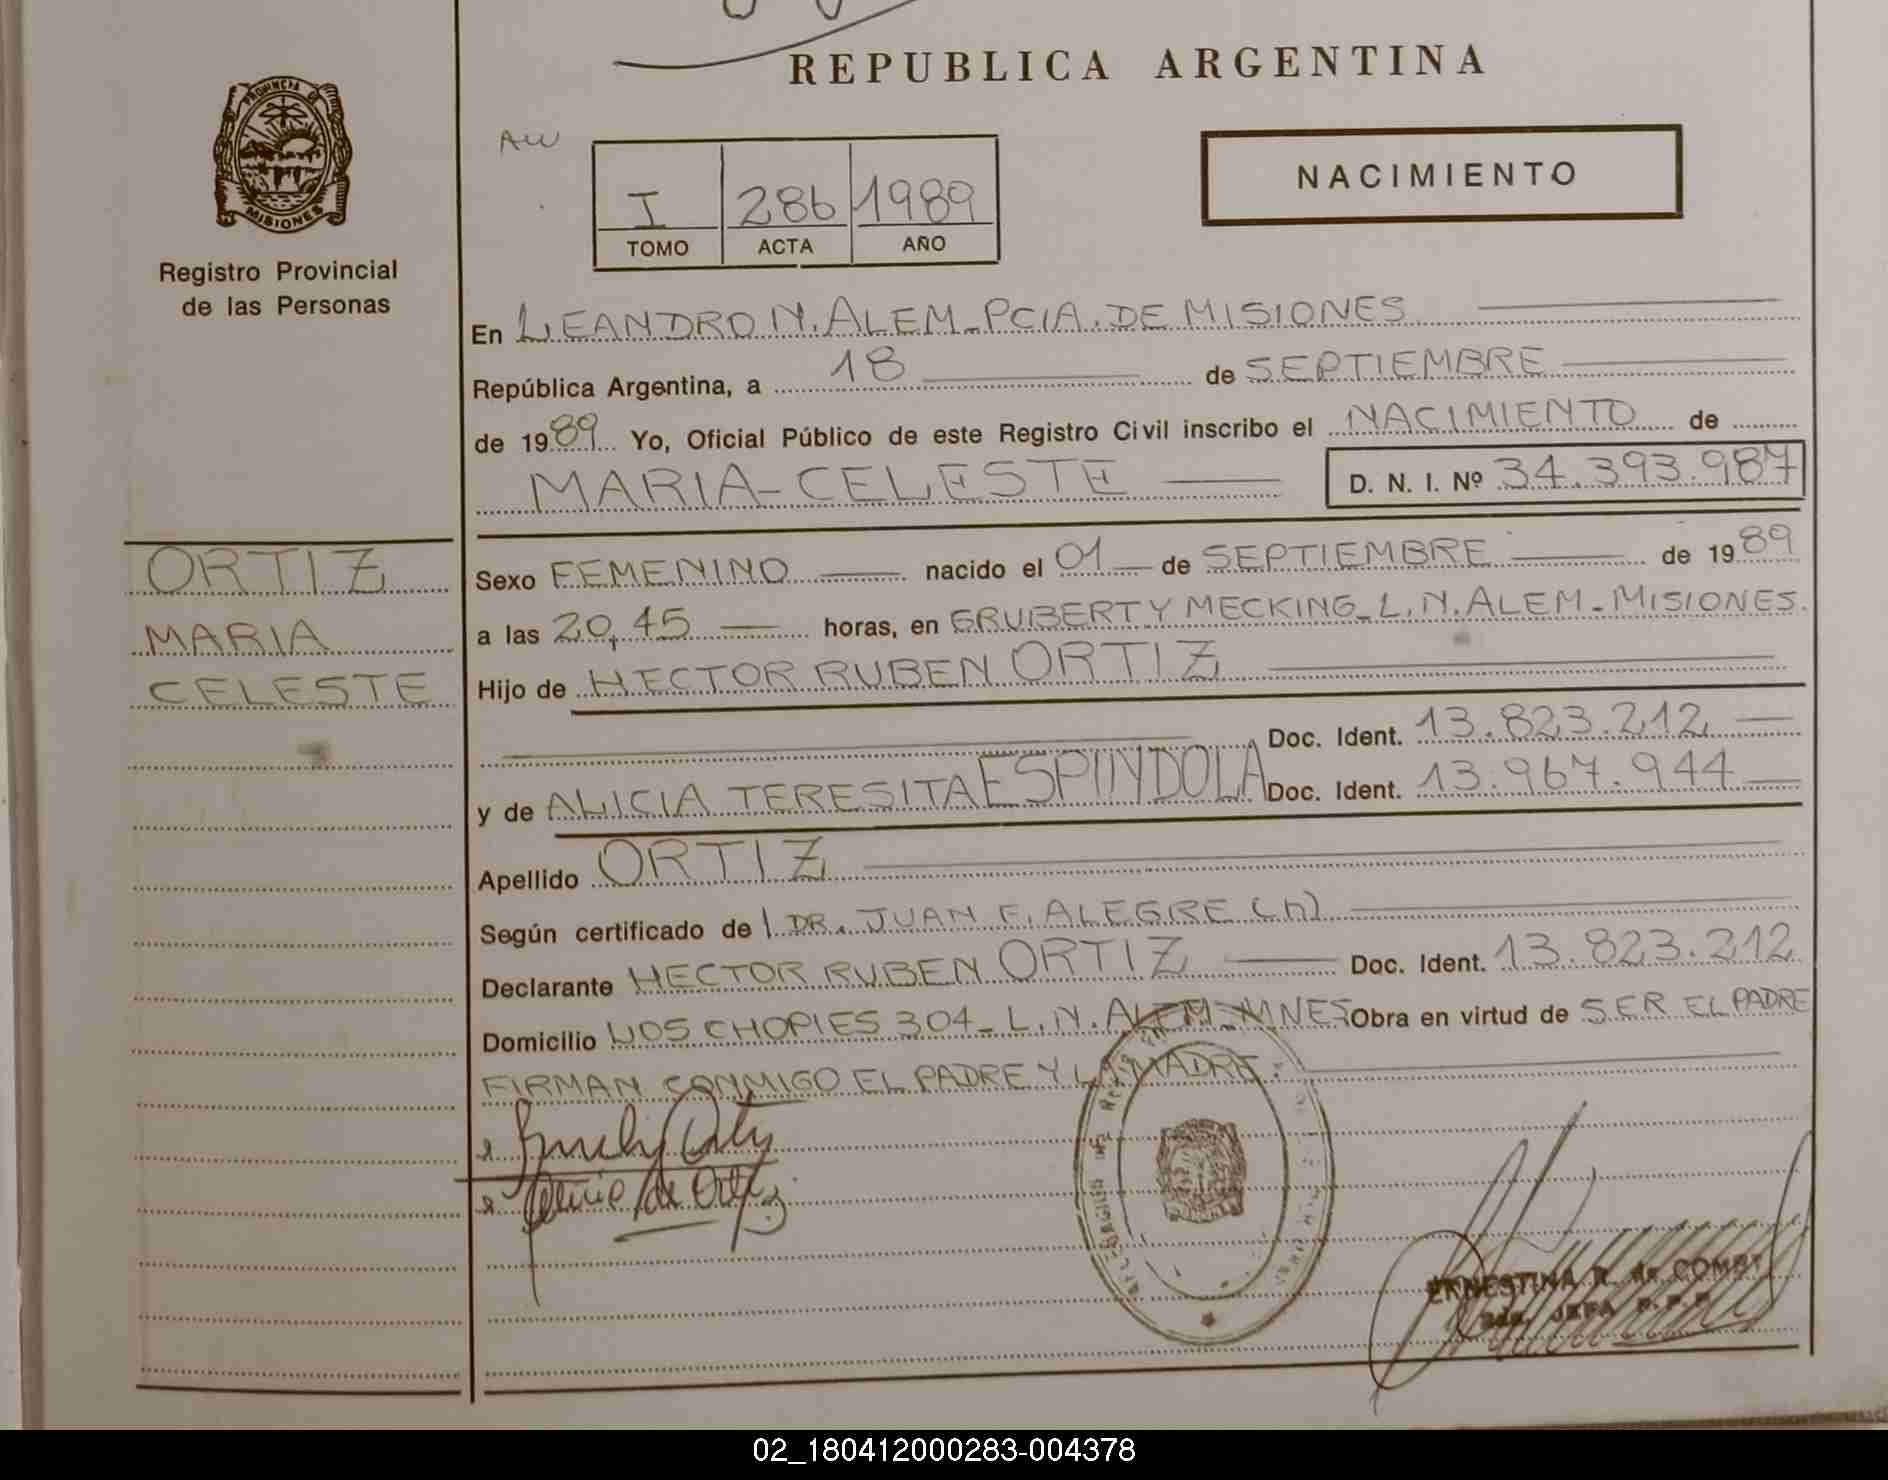 REPUBLICA ARGENTINA
PROVINCIA DE
MISIONES
Registro Provincial
de las Personas
AW
I 286 1989
TOMO ACTA AÑO
NACIMIENTO
En LEANDRO N. ALEM - PCIA. DE MISIONES
República Argentina, a 18 de SEPTIEMBRE
de 1989 Yo, Oficial Público de este Registro Civil inscribo el NACIMIENTO de
MARIA - CELESTE D. N. I. Nº 34.393.987
ORTIZ
MARIA
CELESTE
Sexo FEMENINO nacido el 01 de SEPTIEMBRE de 1989
a las 20,45 horas, en GRUBERT Y MECKING - L. N. ALEM - MISIONES.
Hijo de HECTOR RUBEN ORTIZ
Doc. Ident. 13.823.212
y de ALICIA TERESITA ESPINDOLA Doc. Ident. 13.967.944
Apellido ORTIZ
Según certificado de DR. JUAN F. ALEGRE (h)
Declarante HECTOR RUBEN ORTIZ Doc. Ident. 13.823.212
Domicilio LOS CHOPIES 304 - L. N. ALEM - MNES Obra en virtud de SER EL PADRE
FIRMAN CONMIGO EL PADRE Y LA MADRE.
de Ortiz
ERNESTINA R. de
JEFA
02_180412000283-004378